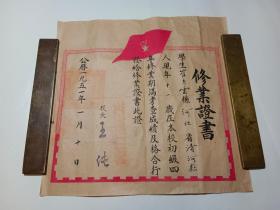 修業證書
學生
河北省清河縣
人現年十
歲在本校初級四
年修業期滿考查成績及格合行
發給修業證書此證
校長王純
公曆一九五一年一月十日